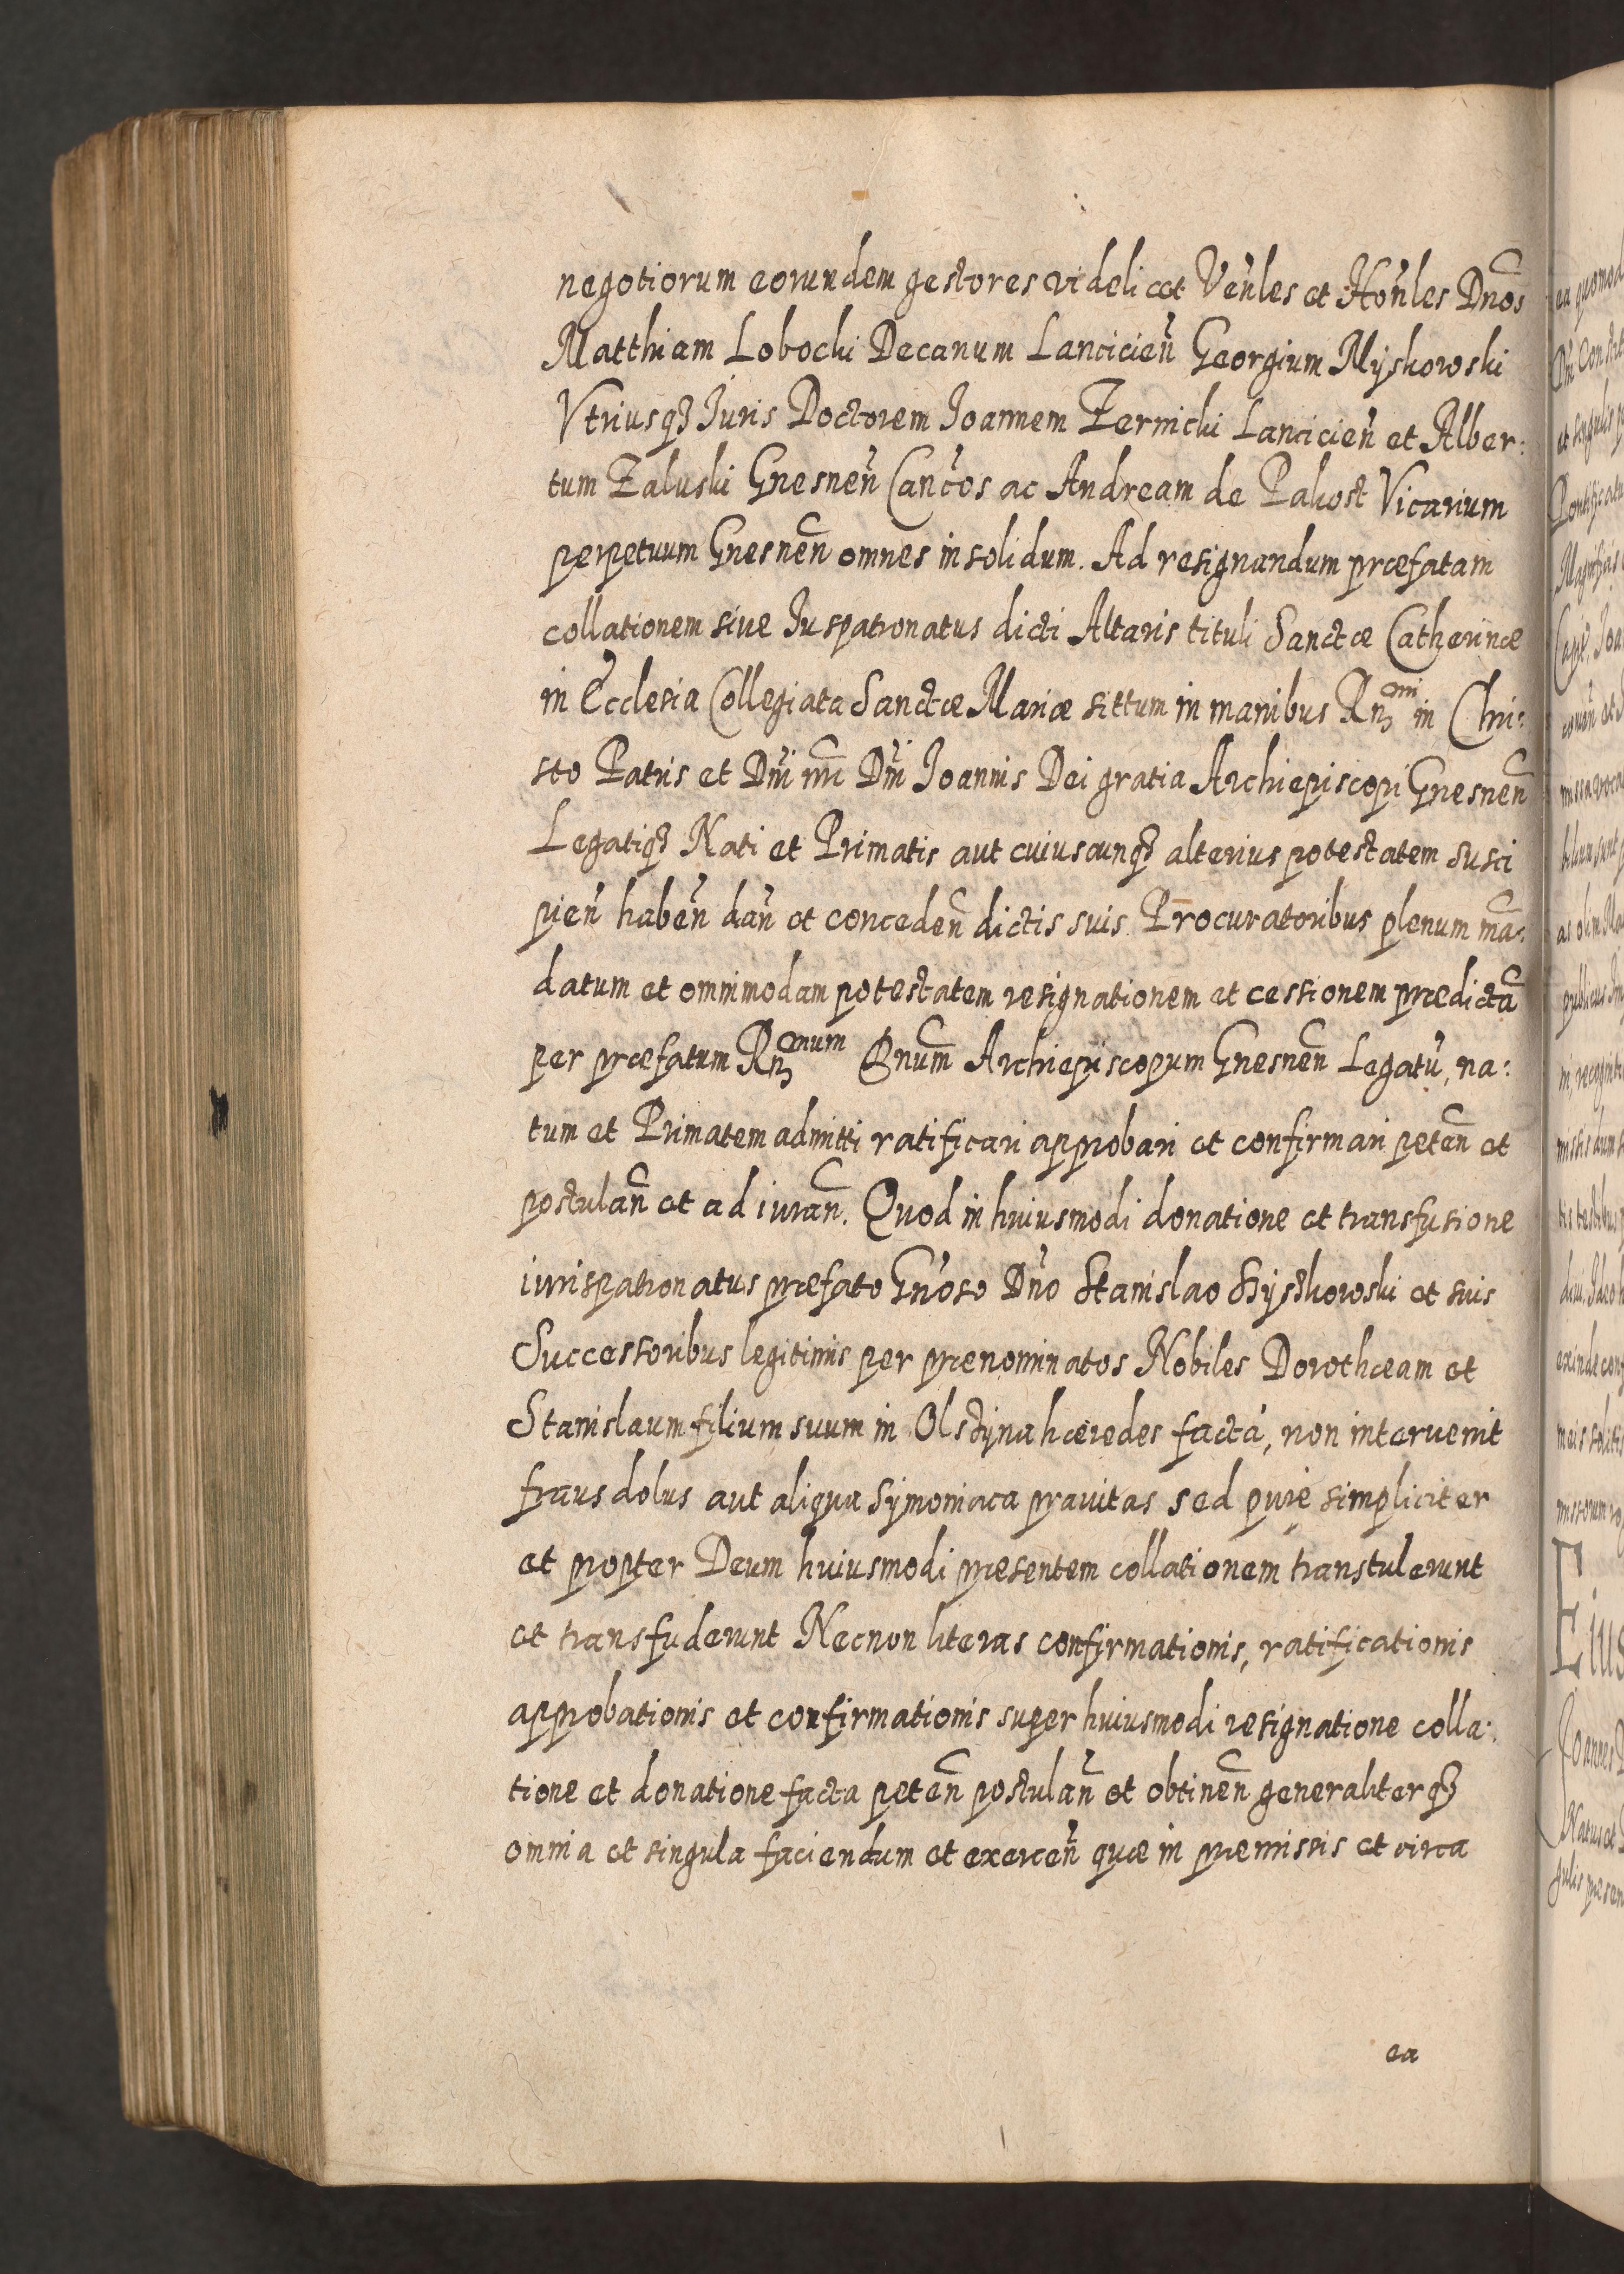 negotiorum eorundem gestores videlicet Ven̄les et Hon̄les Dnos̄
Matthiam Lobocki Decanum Lancicien̄ Georgium Myskowski
Vtriusqȝ Iuris Doctorem Joannem Zernicki Lancicien̄ et Alber:
tum Zaluski Gnesnen̄ Can̄cos ac Andream de Pakost Vicarium
perpetuum Gnesnen̄ omnes insolidum. Ad resignandum præfatam
collationem siue Juspatronatus dicti Altaris tituli Sanctæ Catherinæ
in Ecclesia Collegiata Sanctæ Mariæ sittum in manibus Rn̄ȝ mi in Chri:
sto Patris et Dn̄i nri̅ Dn̄i Joannis Dei gratia Archiepiscopi Gnesnen̄
Legatiqȝ Nati et Primatis aut cuiuscunqȝ alterius potestatem susci
pien̄ haben̄ dan̄ et conceden̄ dictis suis Procuratoribus plenum ma̅:
datum et omnimodam potestatem resignationem et cessionem prædicta̅
per præfatum Rnȝ mum Dnum̄ Archiepiscopum Gnesnen̄ Legatu̅, na:
tum et Primatem admitti ratificari approbari et confirmari peten̄ et
postulan̄ et ad iuran̄. Quod in huiusmodi donatione et transfusione
iurispatronatus præfato Gn̄oso Dn̄o Stanislao Srystkowski et suis
Successoribus legitimis per prænominatos Nobiles Dorotheam et
Stanislaum filium suum in Olstyna hæredes facta, non interuenit
fraus dolus aut aliqua Symoniaca prauitas sed pure simpliciter
et propter Deum huiusmodi præsentem collationem transtulerunt
et transfuderunt Necnon literas confirmationis, ratificationis
approbationis et confirmationis super huiusmodi resignatione colla:
tione et donatione facta peten̄ postulan̄ et obtinen̄ generaliterqȝ
omnia et singula faciendum et exercen̄ quæ in præmissis et circa
ea